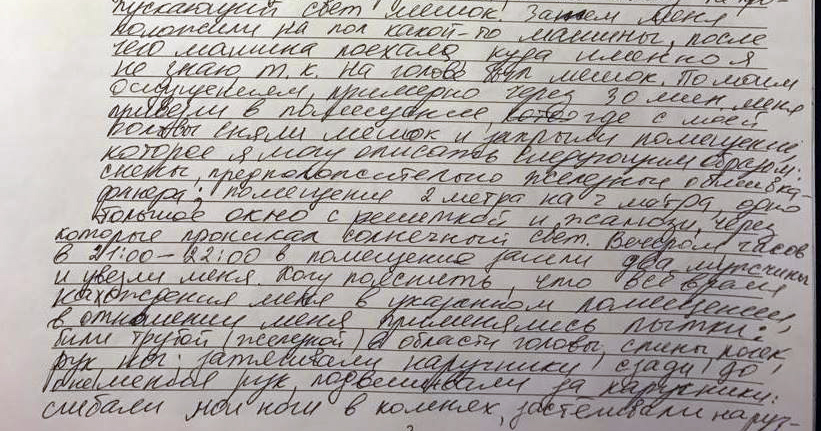 пускающий свет мешок. Затем меня
положили на пол какой-то машины, после
чего машина поехала куда именно я
не знаю т.к. на голове был мешок. По моим
ощущениям, примерно через 30 мин меня
привели в помещение где с моей
головы сняли мешок и закрыли помещение,
которое я могу описать следующим образом:
стены, предположительно железные обшивка-
фанера; помещение 2 метра на 2 метра, одно
большое окно с решеткой и жалюзи, через
которые проникал солнечный свет. Вечером, часов
в 21:00-22:00 в помещение зашли два мужчины
и увезли меня. Хочу пояснить, что всё время
нахождения меня в указанном помещении,
в отношении меня применялись пытки:
били трубой (железной) в области головы, спины, ног,
рук ног; затягивали наручники сзади до
онеменья рук, подвешивали за наручники;
сгибали мои ноги в коленях, застёгивали наруч-